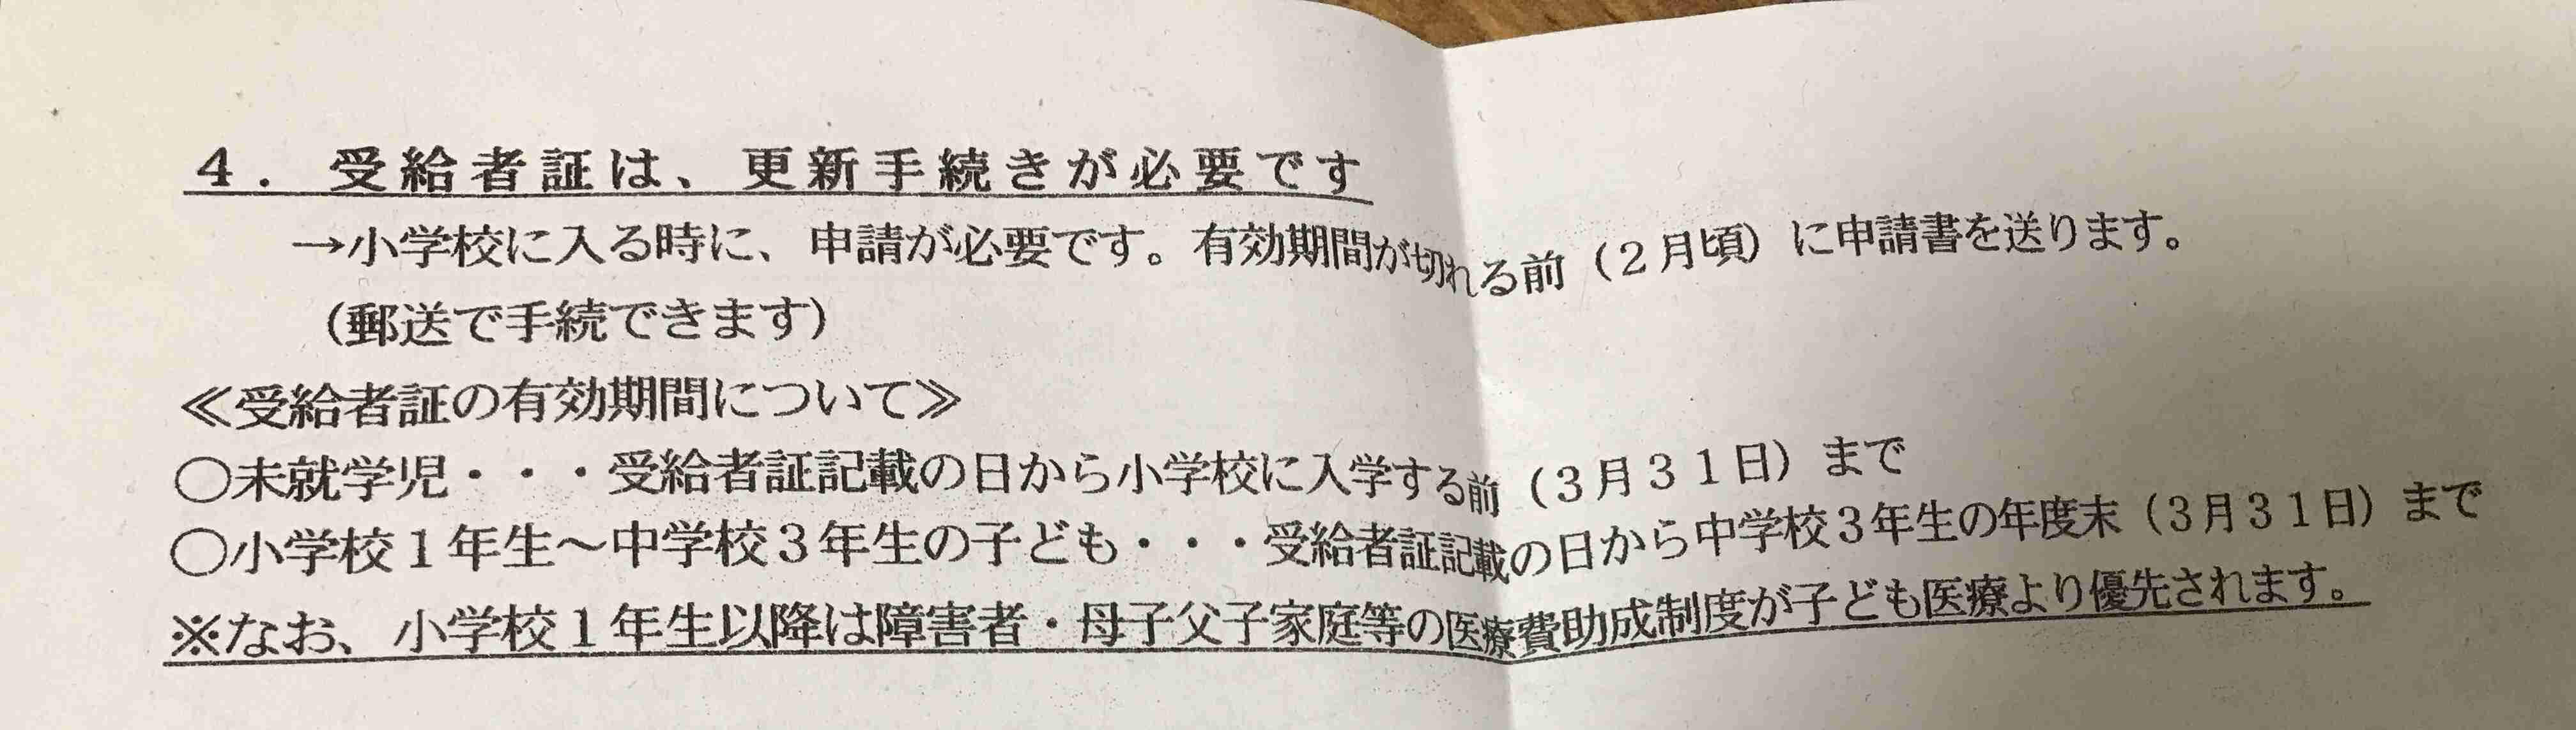 ４．受給者証は、更新手続きが必要です
→小学校に入る時に、申請が必要です。有効期間が切れる前（２月頃）に申請書を送ります。
（郵送で手続できます）
≪受給者証の有効期間について≫
○未就学児・・・受給者証記載の日から小学校に入学する前（３月３１日）まで
○小学校１年生～中学校３年生の子ども・・・受給者証記載の日から中学校３年生の年度末（３月３１日）まで
※なお、小学校１年生以降は障害者・母子父子家庭等の医療費助成制度が子ども医療より優先されます。